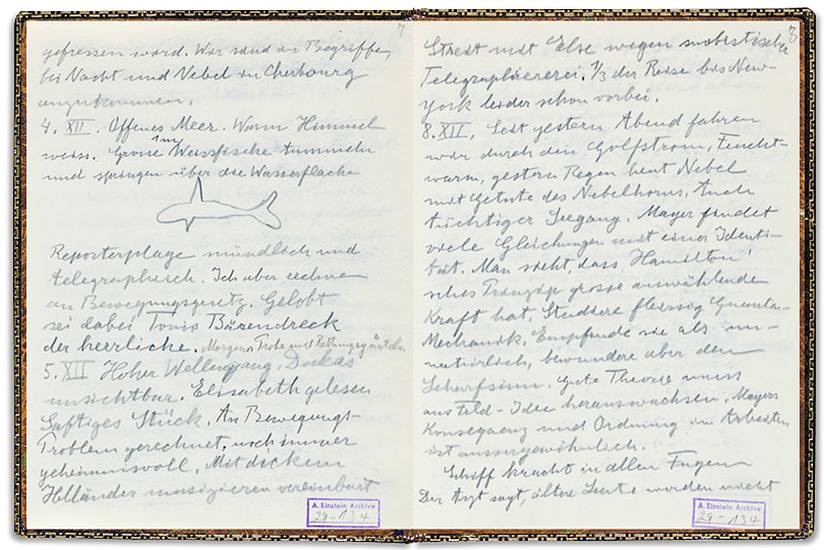 7
gefressen ward. War sand in Begriffe,
bei Nacht und Nebel in Cherbourg
anzukommen.
4. XII. Offenes Meer. Warm Himmel
weiss. Grosse 1 m Weissfische tummeln
und springen über die Wasserfläche
Reporterplage mündlich und
telegraphisch. Ich aber rechne
an Bewegungsgesetz. Gelobt
sei dabei Tonis Bärendreck
der herrliche. Morgens Probe mit Rettungsgürteln
5. XII Hoher Wellengang,
unsichtbar. Elisabeth gelesen
Saftiges Stück. An Bewegungs-
Problem gerechnet, noch immer
geheimnisvoll. Mit dickem
Holländer musizieren vereinbart
A. Einstein Archive
29-134
8
Streit mit Else wegen
Telegraphiererei. 1/3 der Reise bis New-
york leider schon vorbei.
8. XII. Seit gestern Abend fahren
wir durch den Golfstrom, Feucht-
warm, gestern Regen heut Nebel
mit Getute des Nebelhorns, Auch
tüchtiger Seegang. Mayer findet
viele Gleichungen mit einer Identi-
tät. Man sieht, dass Hamilton'
sches Prinzip grosse auswählende
Kraft hat. Studiere fleissig Quanten-
Mechanik. Empfinde sie als un-
natürlich, bewundere aber den
Scharfsinn. Gute Theorie muss
aus Feld-Idee herauswachsen. Mayers
Konsequenz und Ordnung im Arbeiten
ist aussergewöhnlich.
Schiff kracht in allen Fugen
Der Arzt sagt, ältere Leute würden nicht
A. Einstein Archive
29-134